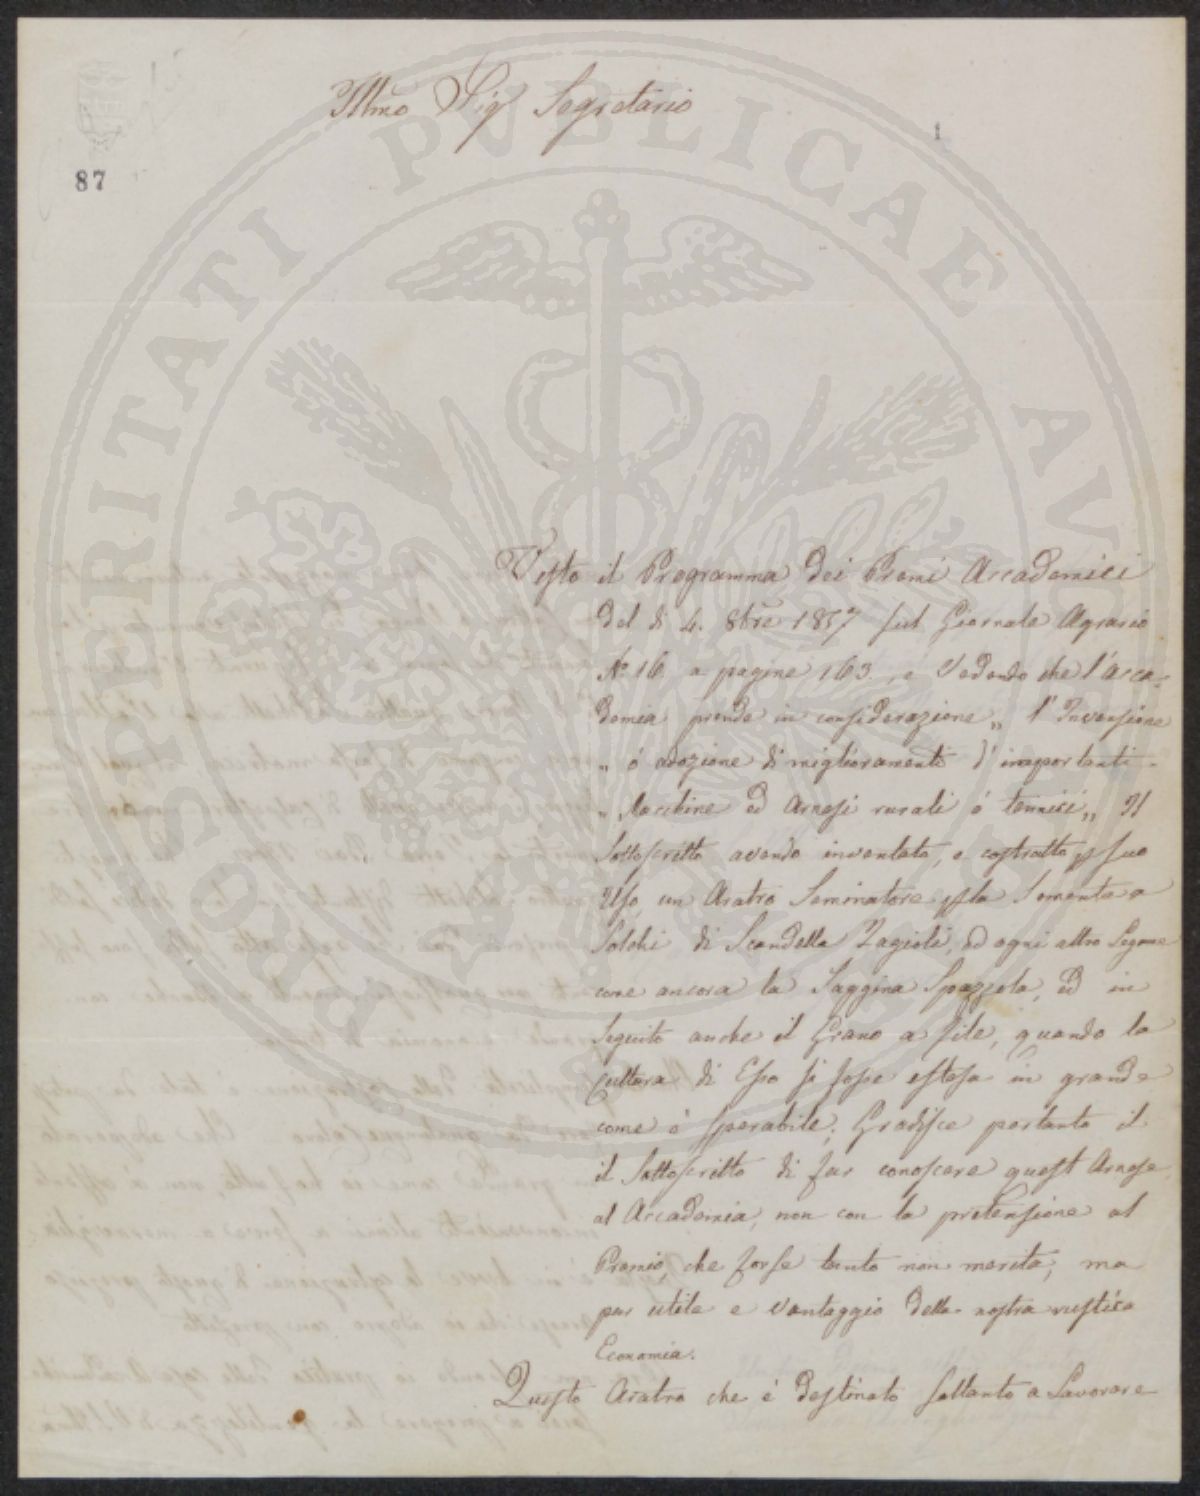 Illmo Sig Segretario
1
87
Visto il Programma dei Premi Accademici
del dì 4. 8bre 1857 sul Giornale Agrario
N° 16. a pagine 163., e Vedendo che l'Acca-
demia prende in considerazione „ l'Invensione
„ ó adozione di miglioramenti d'importanti
„ Macchine ed Arnesi rurali ó tennici „ Il
Sottoscritto avendo inventato, e costratto p suo
Uso, un Aratro Seminatore p la Sementa a
Solchi di Scandella Fagioli, ed ogni altro Legume
come ancora la Saggina Spazzola, ed in
Seguito anche il Grano a file, quando la
Cultura di Esso si fosse estesa in grande
come è sperabile; Gradisce pertanto il
il Sottoscritto di far conoscere quest Arnese
al Accademia, non con la pretensione al
Premio, che forse tanto non merita, ma
per utile e Vantaggio della nostra rustica
Economia.
Questo Aratro che è destinato soltanto a Lavorare
PROSPERITATI PUBLICAE AU